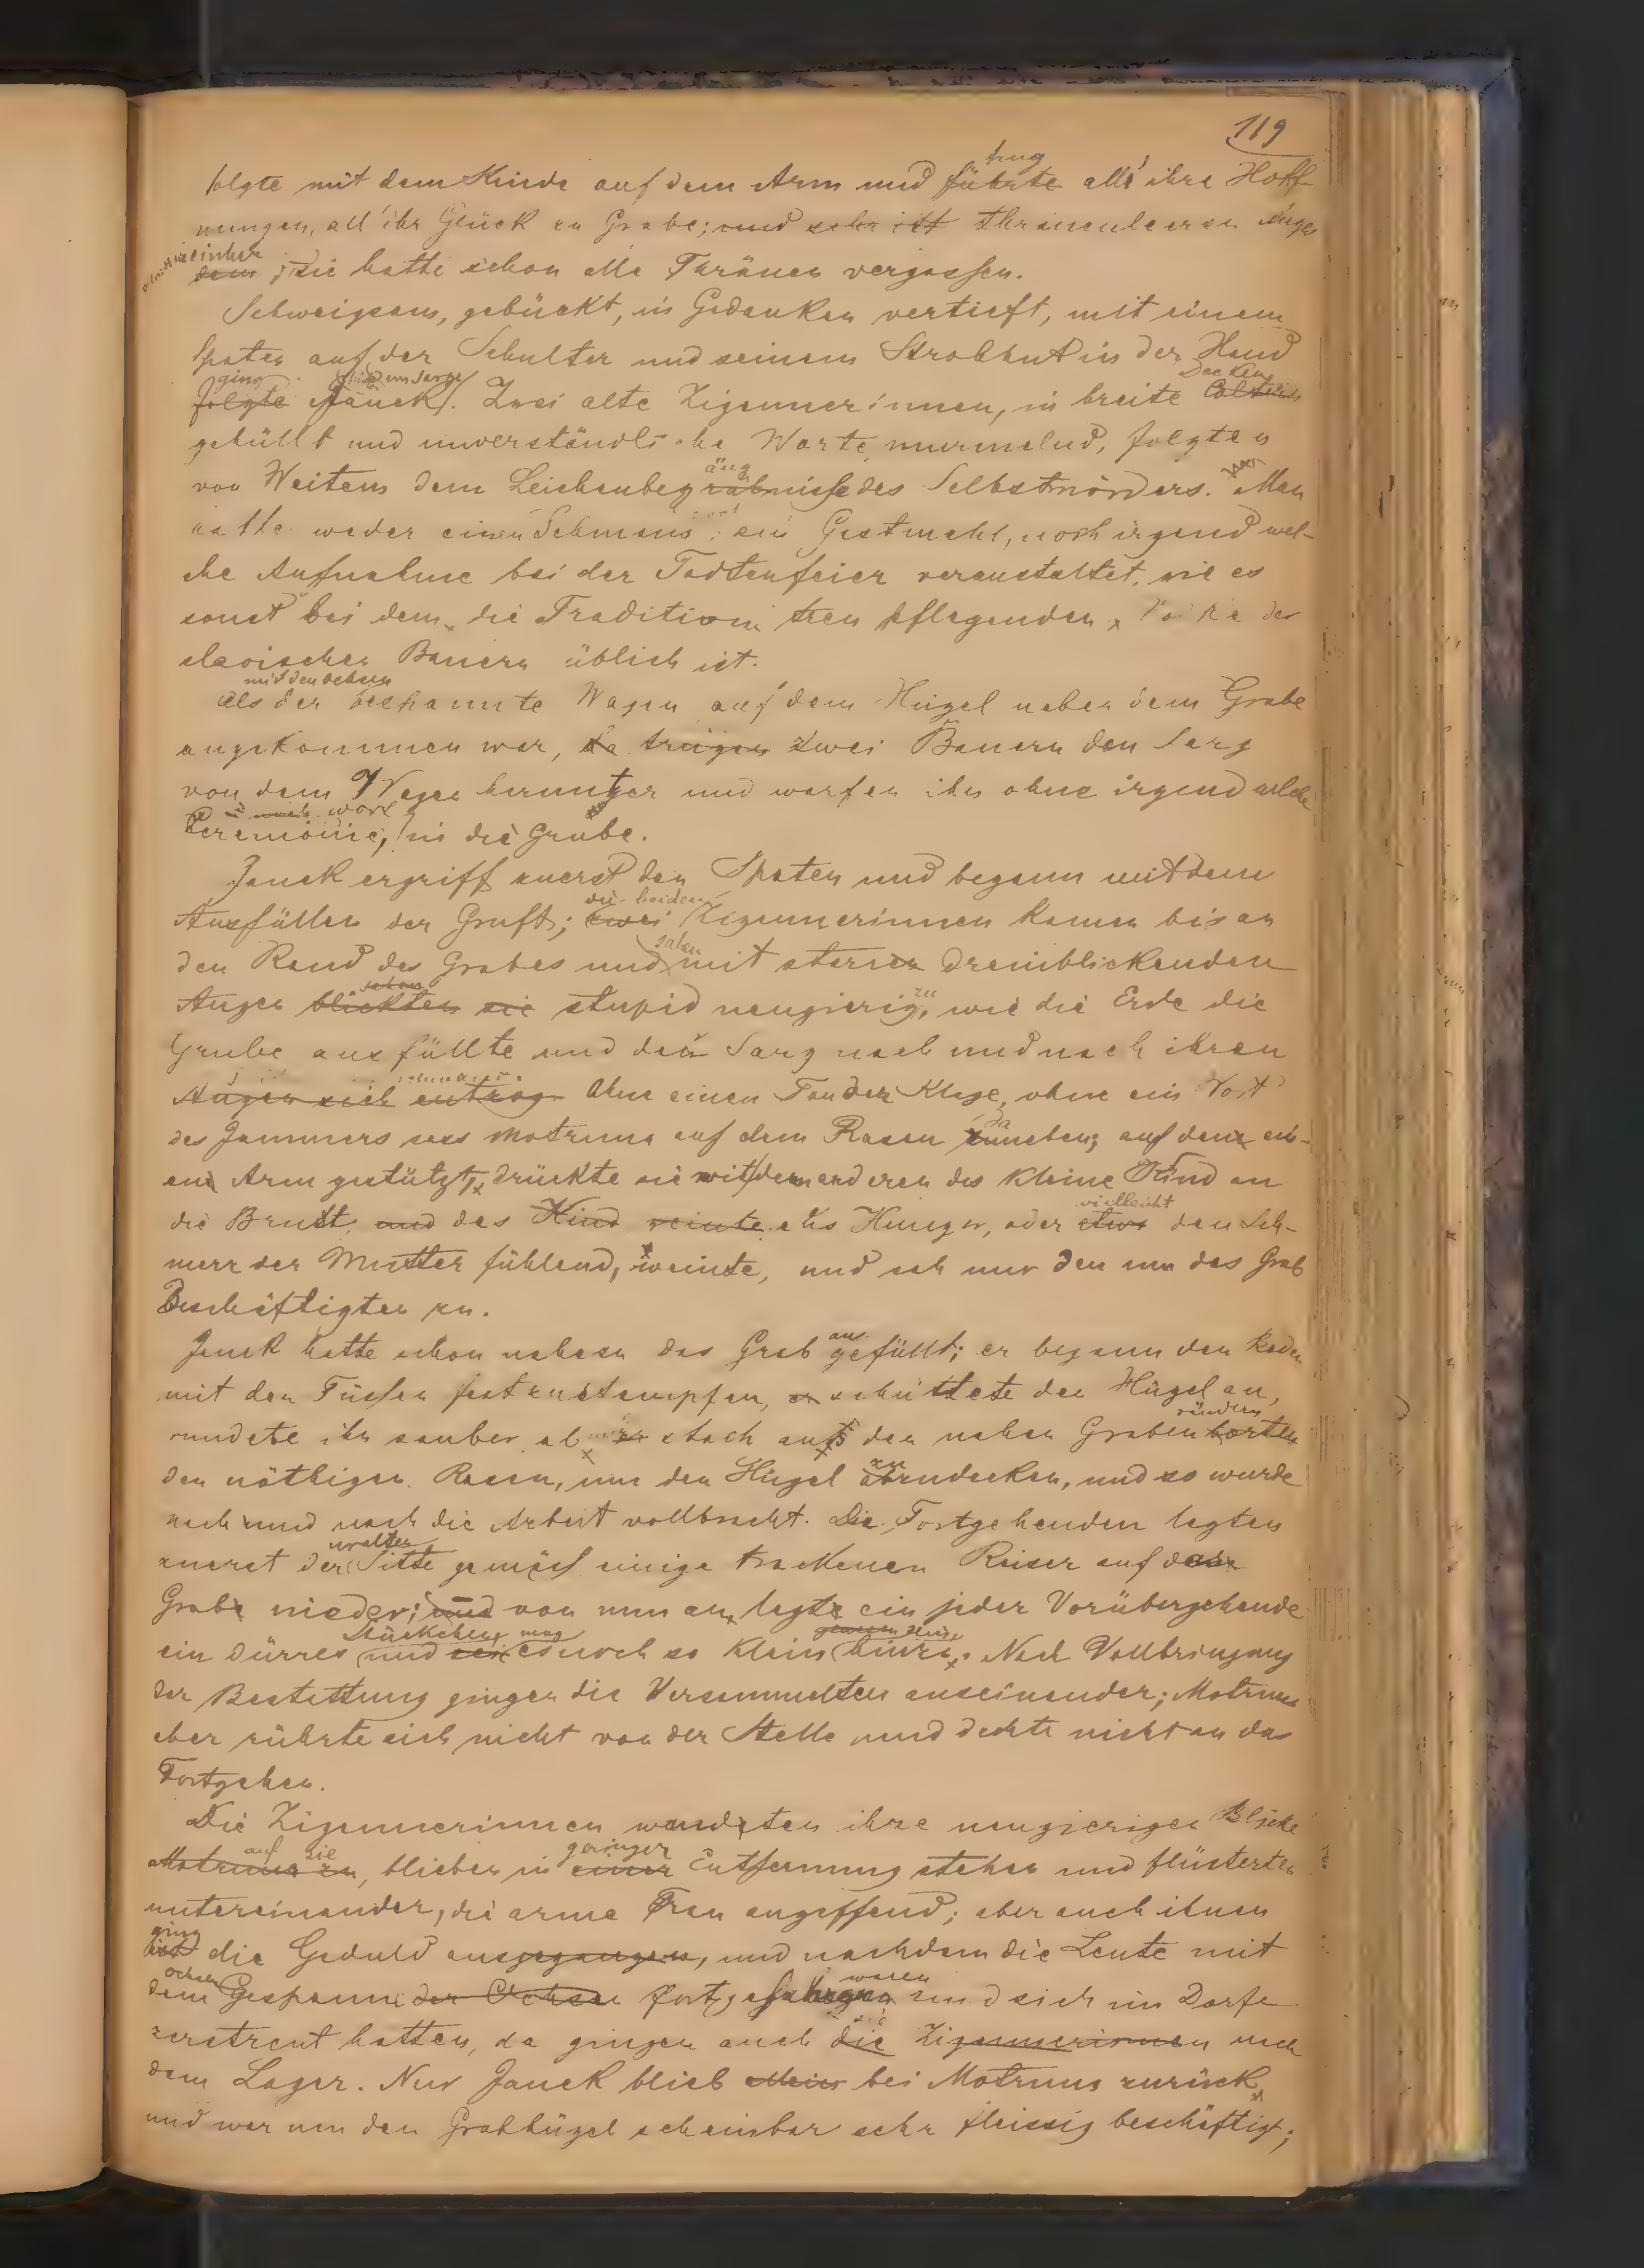 119
folgte mit dem Kinde auf dem Arm und führte trug all' ihre Hoff-
nungen, all' ihr Glück zu Grabe; und sehr ist thränenleeren Auges
einher dem; sie hatte schon alle Thränen vergossen.
Schweigsam, gebückt, in Gedanken vertieft, mit einem
Spaten auf der Schulter und seinem Strohhut in der Hand
folgte ging Janek hinter dem Sarge. Zwei alte Zigeunerinnen, in breite Decken
gehüllt und unverständliche Worte murmelnd, folgten
von Weitem dem Leichenbegängnisse des Selbstmörders. Man
hatte weder einen Schmaus, ein Gastmahl, noch irgend wel-
che Aufnahme bei der Todtenfeier veranstaltet, wie es
sonst bei dem, die Tradition treu pflegenden, Volke der
slavischen Bauern üblich ist.
Als der mit den Ochsen bespannte Wagen auf dem Hügel neben dem Grabe
angekommen war, da trugen zwei Bauern den Sarg
von dem Wagen herunter und warfen ihn ohne irgend welche
Ceremonie, in die Grube.
Janek ergriff zuerst den Spaten und begann mit dem
Ausfüllen der Gruft; zwei die beiden Zigeunerinnen kamen bis an
den Rand des Grabes und sahen mit starren dreinblickenden
Augen blickten sie stupid neugierig zu, wie die Erde die
Grube ausfüllte und den Sarg nach und nach ihren
Augen sich entzog. Ohne einen Ton der Klage, ohne ein Wort
des Jammers sass Motruna auf dem Rasen daneben; auf den ein-
en Arm gestützt, drückte sie mit dem anderen das kleine Kind an
die Brust, und das Kind weinte als Hunger, oder etwa vielleicht den Sch-
merz der Mutter fühlend, weinte, und sah nur den um das Grab
Beschäftigten zu.
Janek hatte schon nahezu das Grab ausgefüllt; er begann den Boden
mit den Füssen festzustampfen, er schüttete den Hügel an,
rundete ihn sauber ab, er stach aus den nahen Grabenborten rändern
den nöthigen Rasen, um den Hügel abzudecken, und so wurde
nach und nach die Arbeit vollbracht. Die Fortgehenden legten
zuerst der uralten Sitte gemäss einige trockenen Reiser auf dem
Grabe nieder; und von nun an legte ein jeder Vorübergehende
ein dürres Stückchen und sei mag es noch so klein gewesen sein hinzu. Nach Vollbringung
der Bestattung gingen die Versammelten auseinander; Motruna
aber rührte sich nicht von der Stelle und dachte nicht an das
Fortgehen.
Die Zigeunerinnen wandten ihre neugierigen Blicke
Motruna zu auf sie, blieben in einer geringer Entfernung stehen und flüsterten
untereinander, die arme Frau angaffend; aber auch ihnen
ist ging die Geduld ausgegangen, und nachdem die Leute mit
dem Ochsen Gespann der Ochsen fortgefahren waren und sich im Dorfe
zerstreut hatten, da gingen auch die sie Zigeunerinnen nach
dem Lager. Nur Janek blieb allein bei Motruna zurück
und war um den Grabhügel scheinbar sehr fleissig beschäftigt;